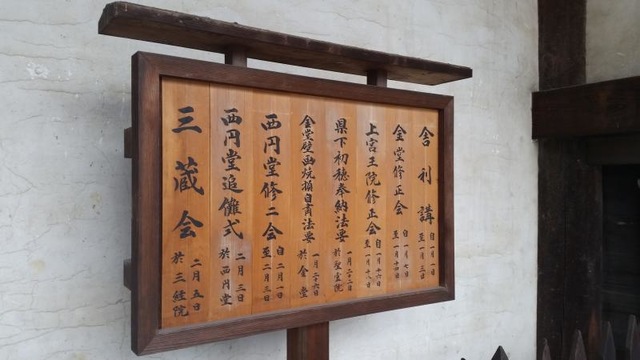 舎利講 自一月一日 至一月三日
金堂修正会 自一月七日 至一月十四日
上宮王院修正会 自一月十六日 至一月十八日
県下初穂奉納法要 一月二十二日 於聖霊院
金堂壁画焼損自粛法要 一月二十六日 於金堂
西円堂修二会 自二月一日 至二月三日
西円堂追儺式 二月三日 於西円堂
三蔵会 二月五日 於三経院